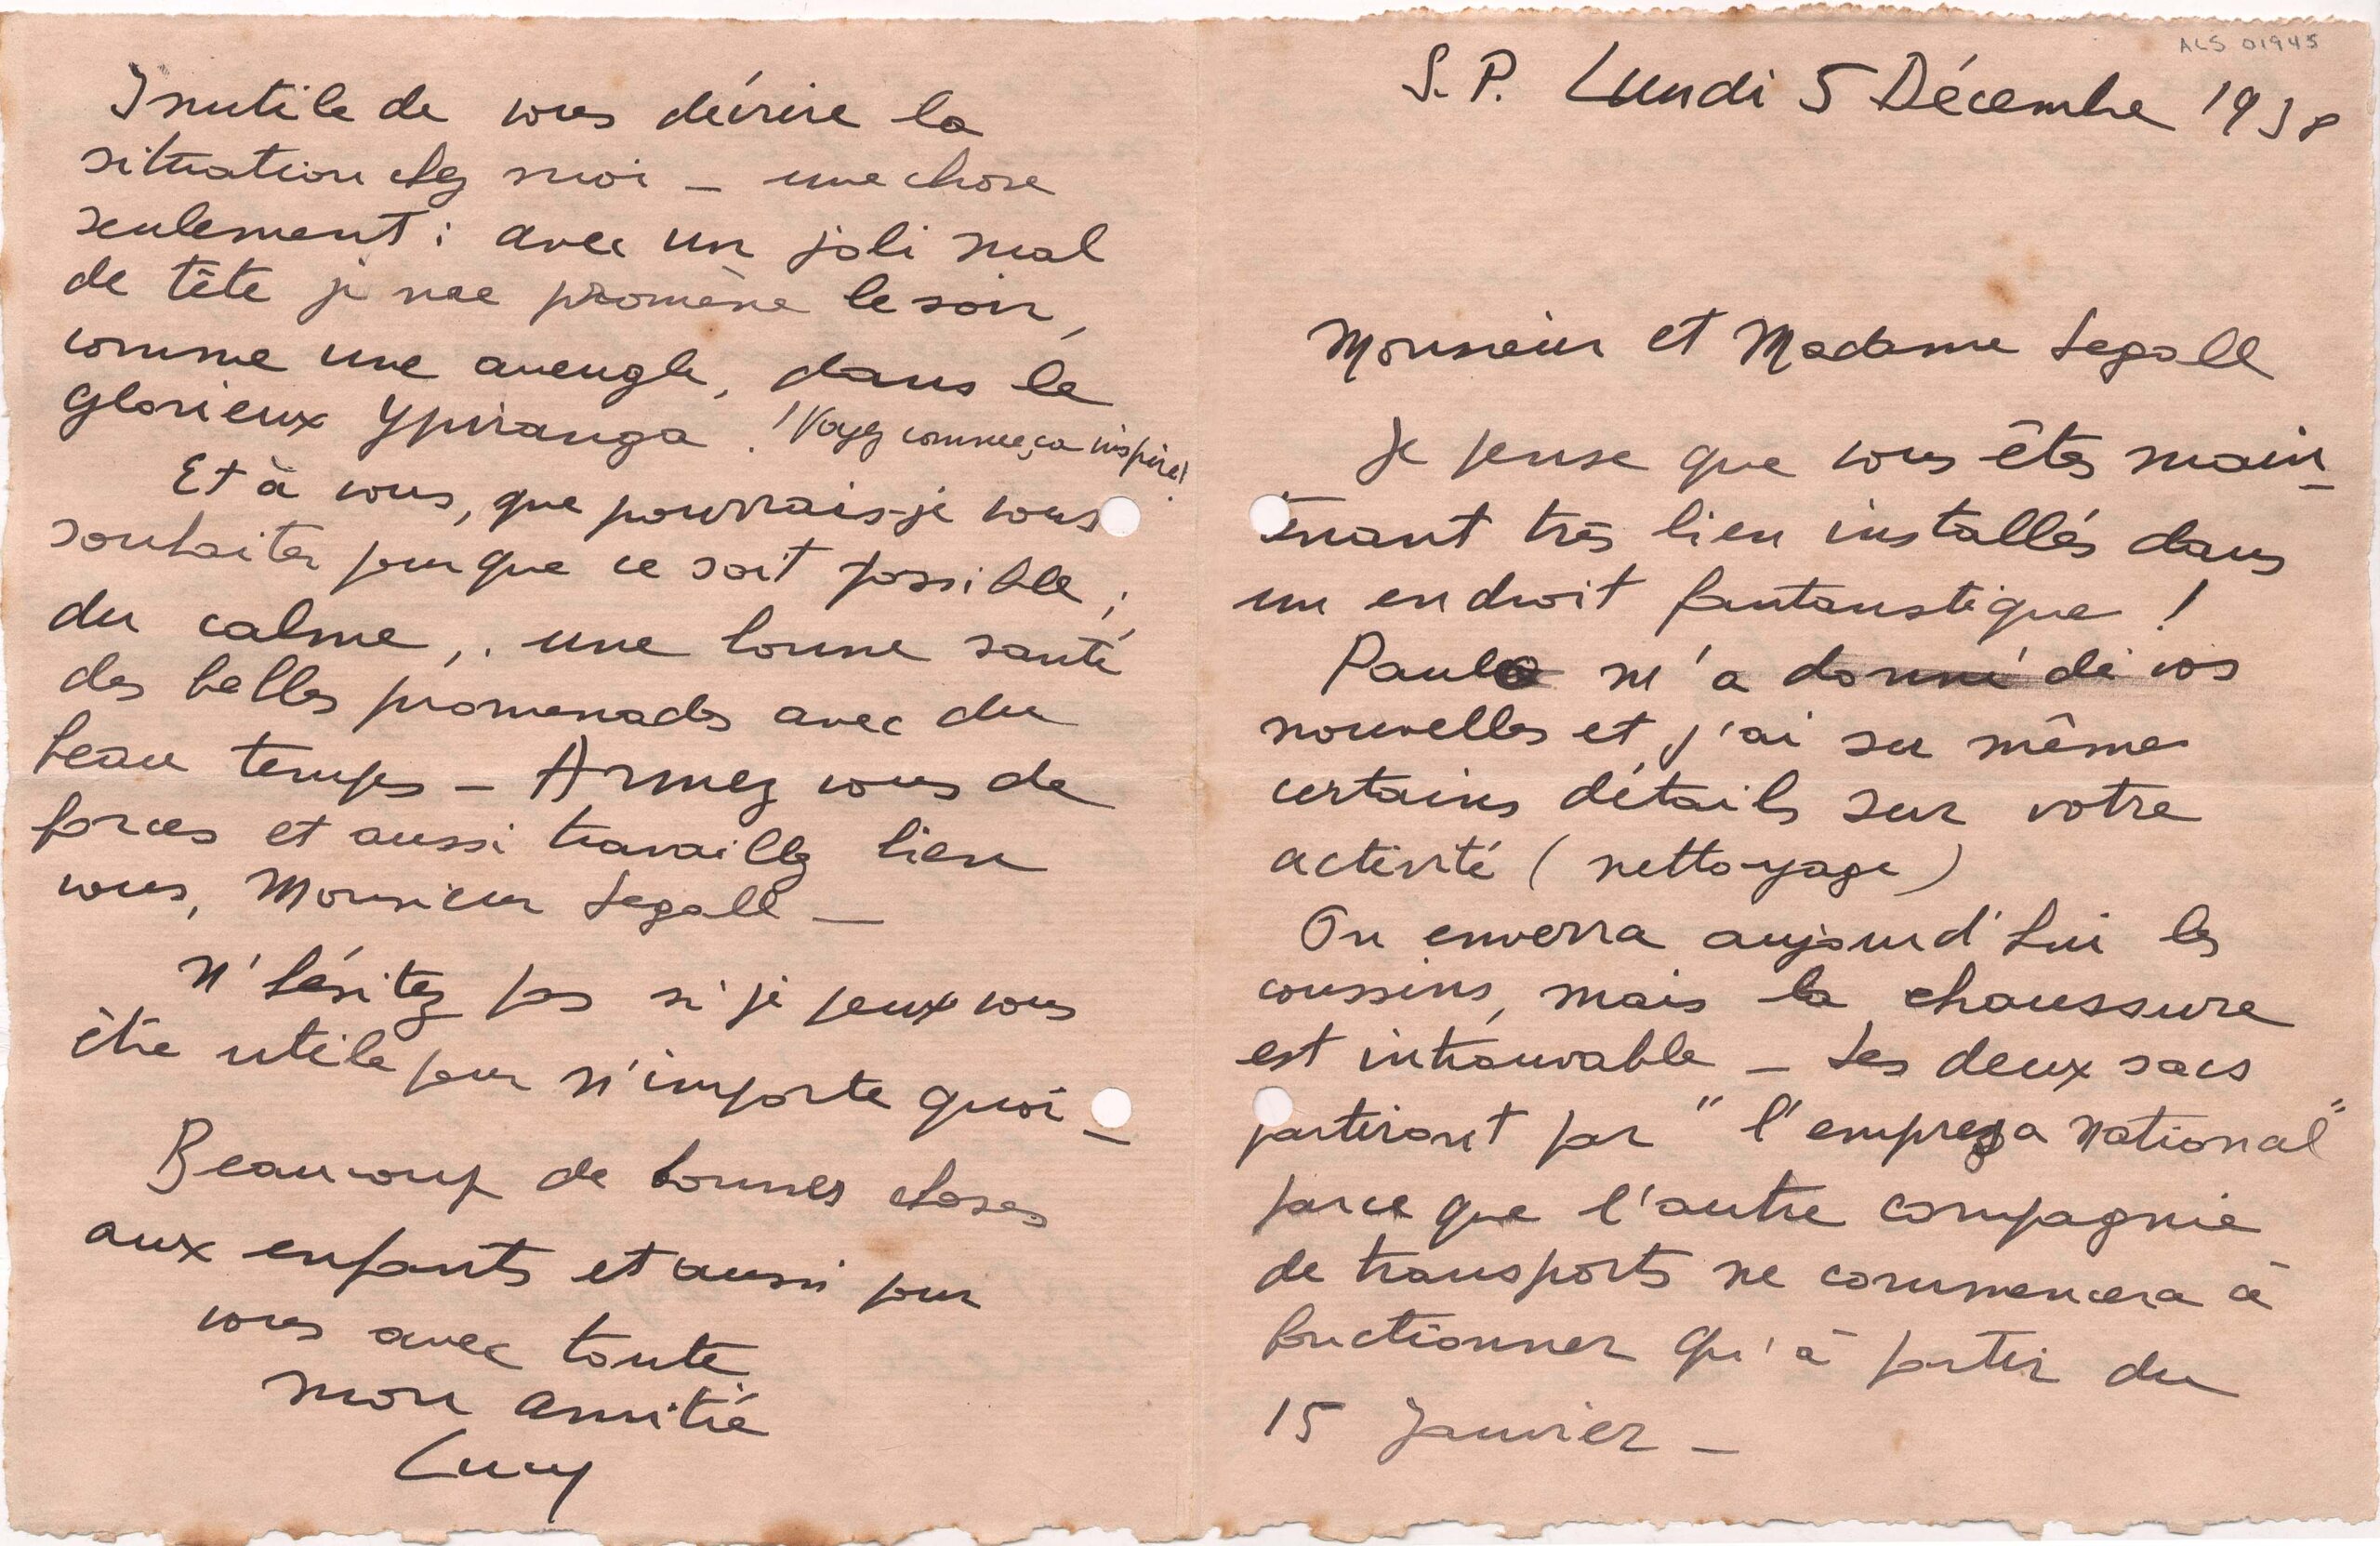 ALS 01945
S. P. Lundi 5 Décembre 1938
Monsieur et Madame Segall
Je pense que vous êtes main-
tenant très bien installés dans
un endroit fantaustique !
Paulo m'a donné de vos
nouvelles et j'ai su même
certains détails sur votre
activité (nettoyage)
On enverra aujourd'hui les
coussins, mais la chaussure
est introuvable – Les deux sacs
partiront par "l'empreza National"
parce que l'autre compagnie
de transports ne commencera à
fonctionner qu'à partir du
15 Janvier –
Inutile de vous décrire la
situation chez moi – une chose
seulement : avec un joli mal
de tête je me promène le soir,
comme une aveugle, dans le
glorieux Ypiranga. (Voyez comme ça inspire!
Et à vous, que pourrais-je vous
souhaiter pour que ce soit possible ;
du calme, une bonne santé
des belles promenades avec du
beau temps – Armez vous de
forces et aussi travaillez bien
vous, Monsieur Segall –
N'hésitez pas si je peux vous
être utile pour n'importe quoi –
Beaucoup de bonnes choses
aux enfants et aussi pour
vous avec toute
mon amitié
Lucy